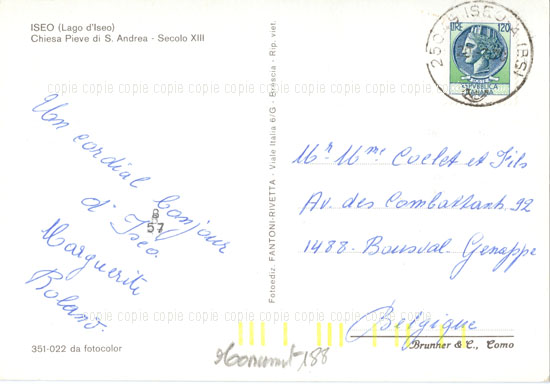 ISEO (Lago d'Iseo)
Chiesa Pieve di S. Andrea - Secolo XIII
Un cordial
bonjour
d'Iseo.
Marguerite
Rolano.
B
57
351-022 da fotocolor
Fotoediz. FANTONI-RIVETTA - Viale Italia 6/G - Brescia - Rip. viet.
LIRE 120
REPUBBLICA
ITALIANA
25049 ISEO
Mr Mme Cuelet et Fils
Av. des Combattants 92
1488 - Bousval-Genappe
Belgique
Brunner & C., Como
188
copie copie copie copie copie copie copie copie copie copie copie
copie copie copie copie copie copie copie copie copie copie copie
copie copie copie copie copie copie copie copie copie copie copie